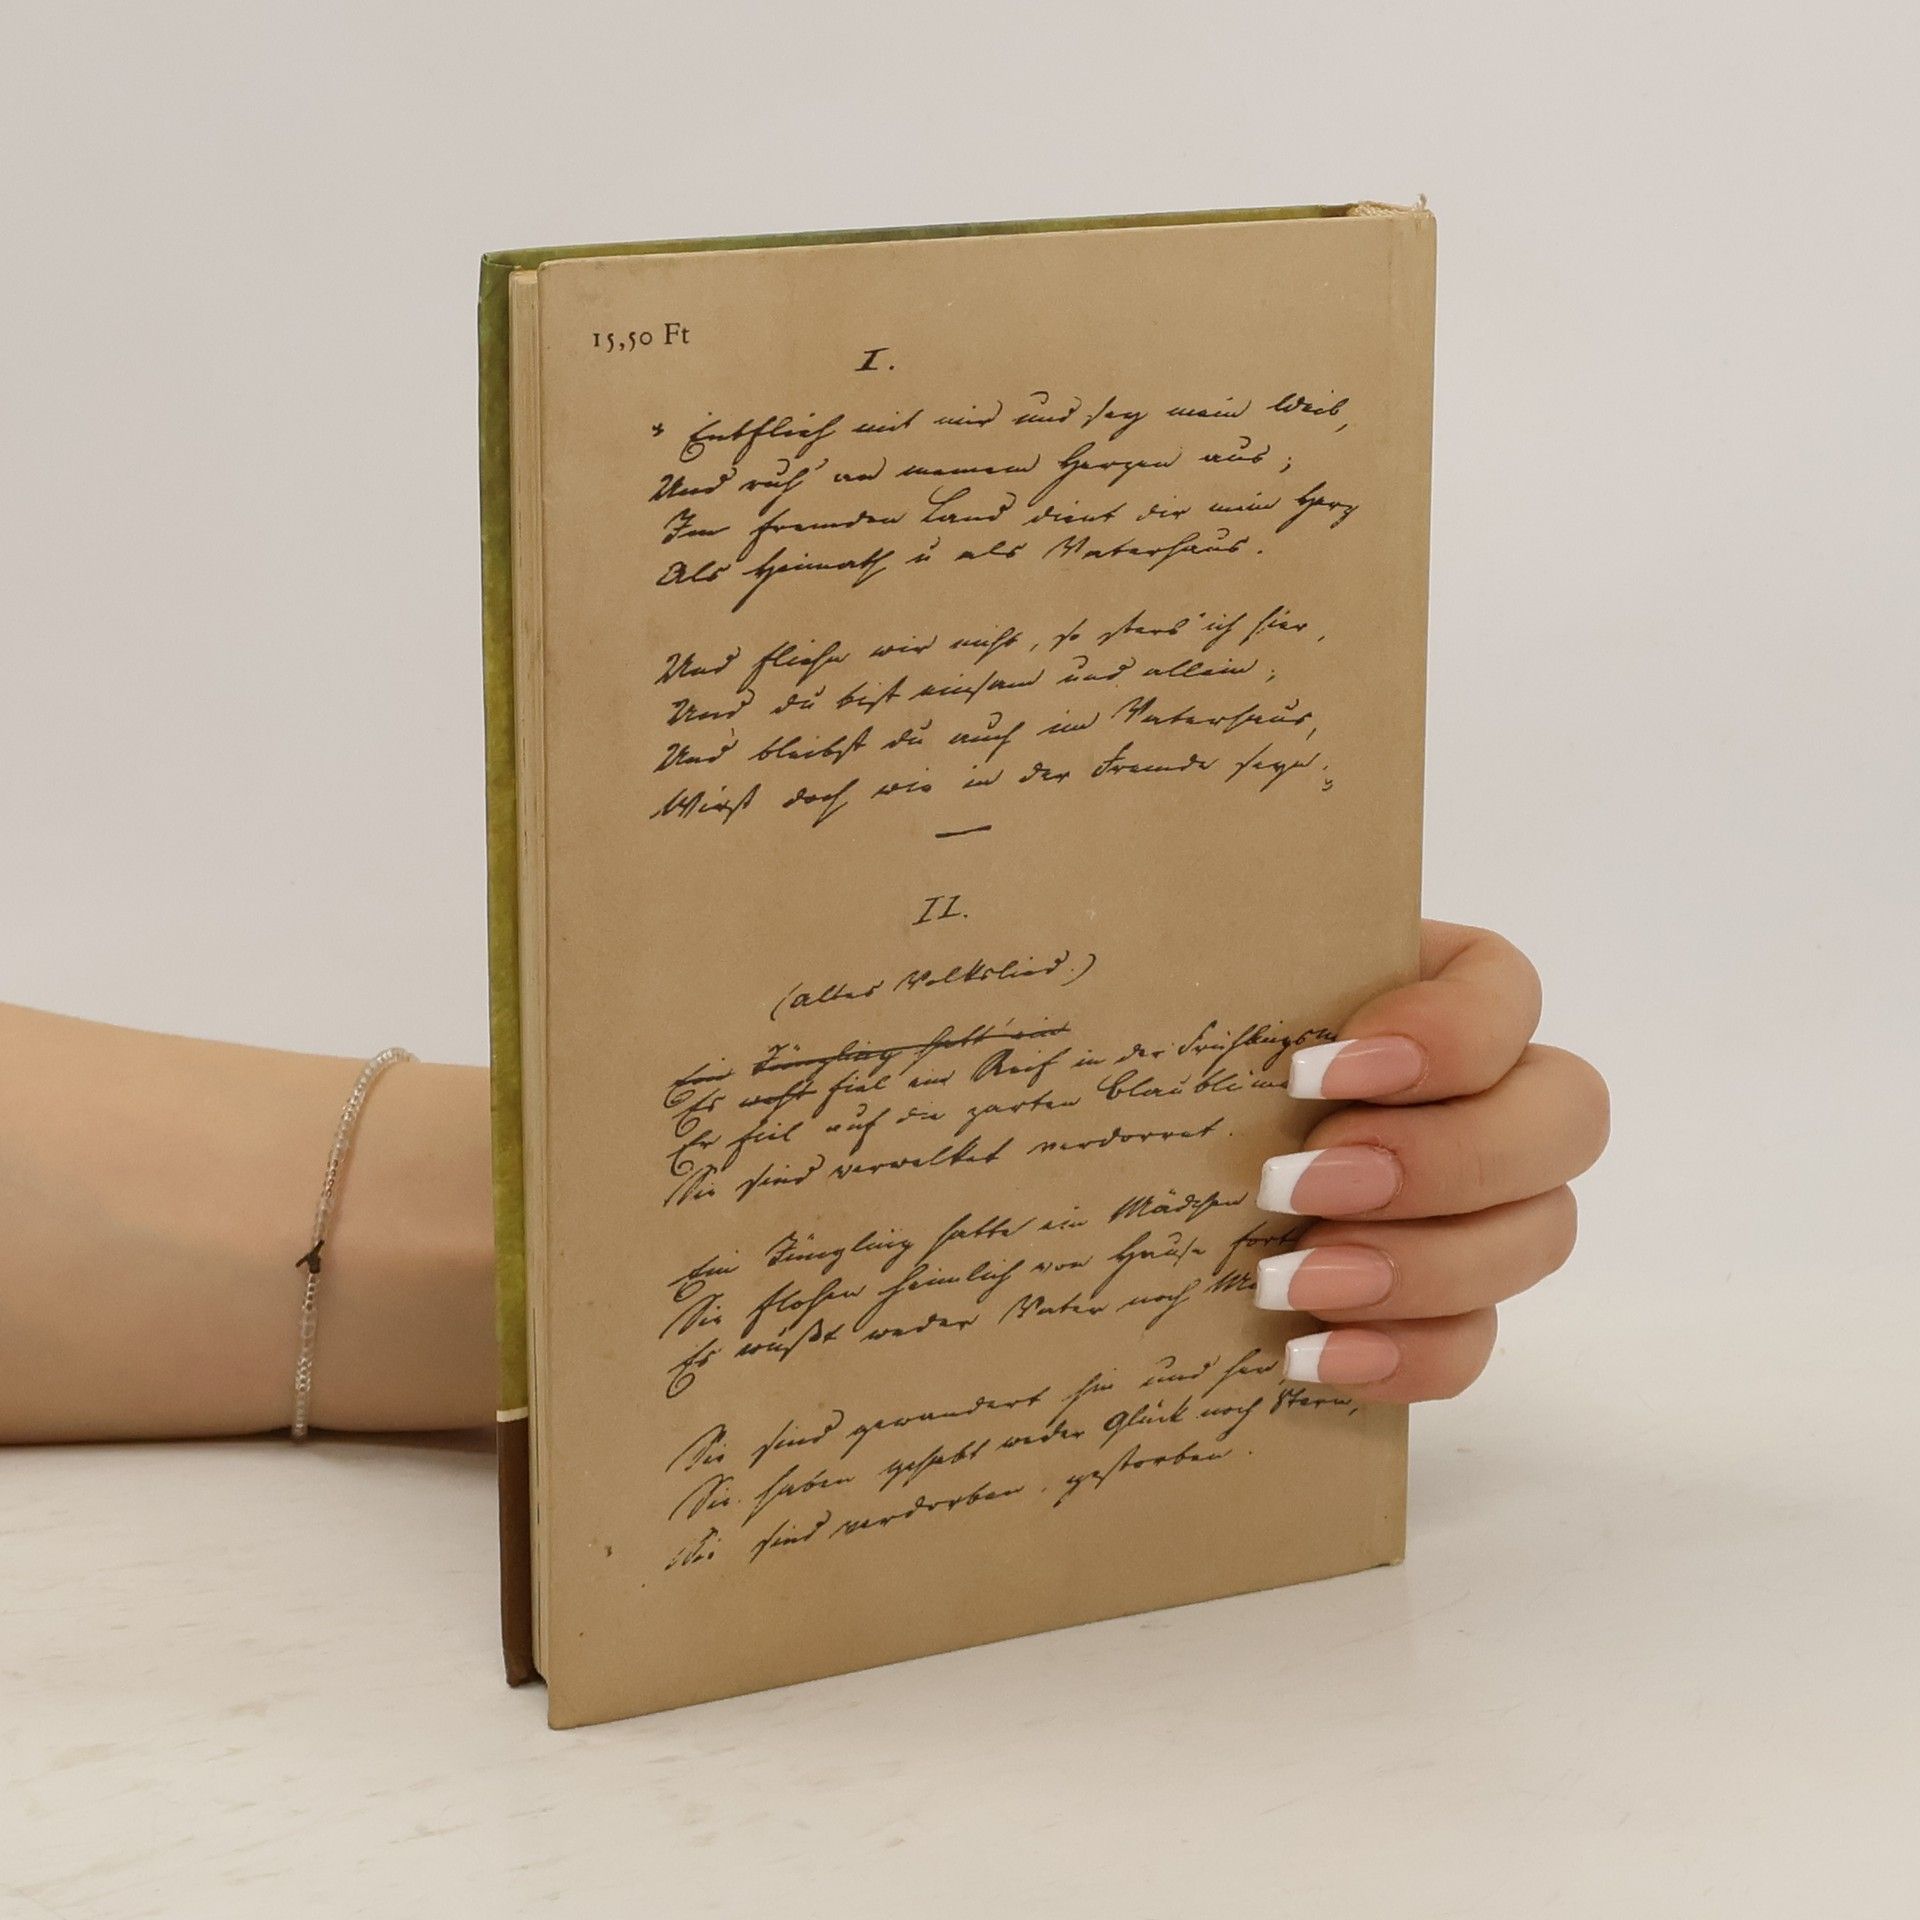 15,50 Ft
I.
„Entflieh mit mir und sey mein Weib,
Und ruh' an meinem Herzen aus;
Im fremden Land dient dir mein Herz
Als Heimath u als Vaterhaus.
Und fliehn wir nicht, so sterb' ich hier,
Und du bist einsam und allein;
Und bleibst du auch im Vaterhaus,
Wirst doch wie in der Fremde seyn."
II.
(Altes Volkslied.)
Ein Jüngling hatt' ein
Es fiel ein Reif in der
Er fiel auf die zarten
Sie sind verwelket verdorret.
Ein Jüngling hatte ein Mädchen
Sie flohen heimlich von Hause fort
Es wußt weder Vater noch
Sie sind gewandert hin und her,
Sie haben gehabt weder Glück noch Stern,
Sie sind verdorben, gestorben.